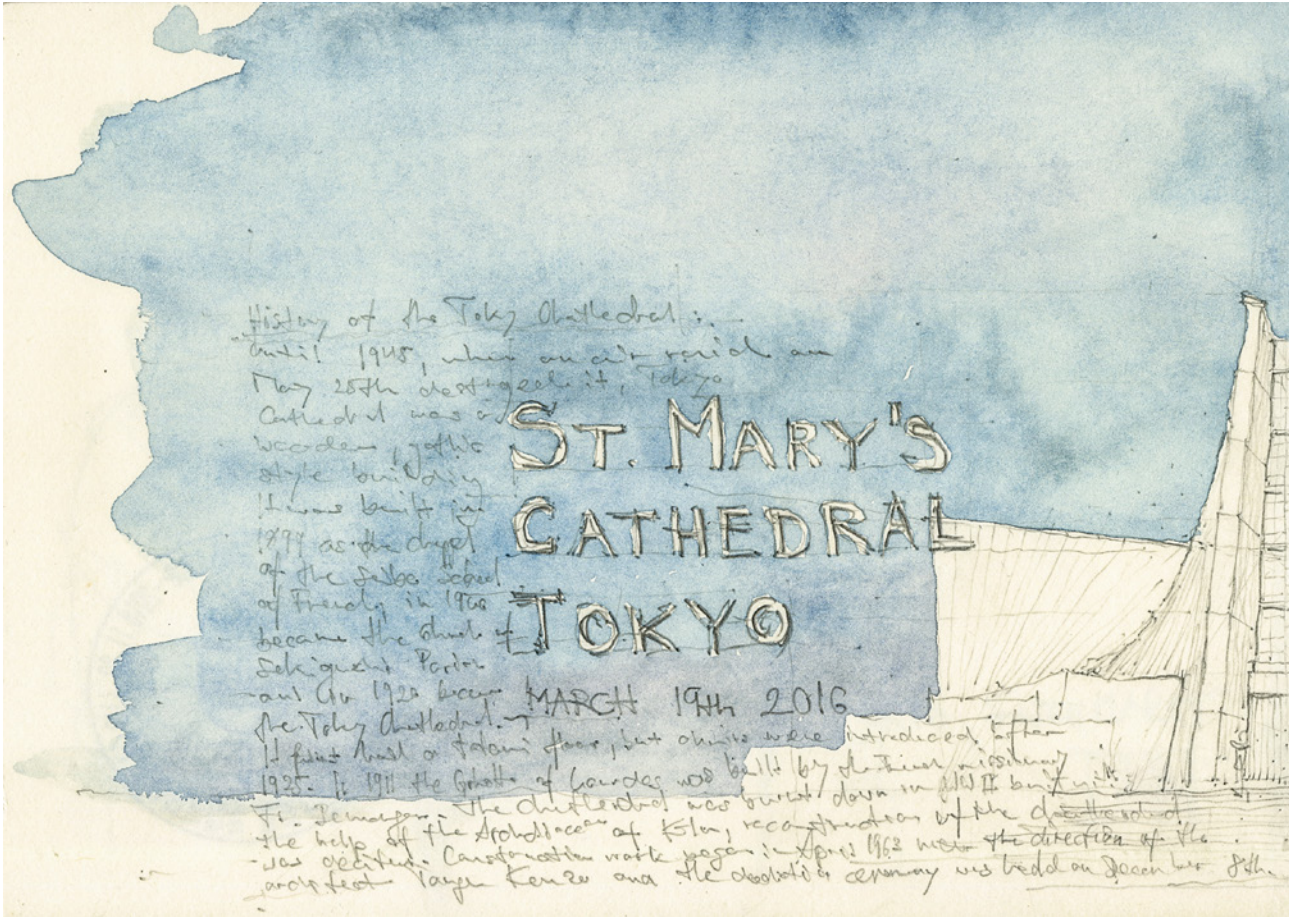 History of the Toky Chathedral :.
until 1945, when an air raid on
May 25th destroyed it, Tokyo
Cathedral was a
wooden, gothic
style building
It was built in
as the chapel
of the Seibo School
of French, in 19
became the church of
Sekiguchi Parish
and in 1920 became
the Toky Chathedral.
ST. MARY'S
CATHEDRAL
TOKYO
MARCH 19th 2016
It first had a Tatami floor, but chairs were introduced after
1925. In 1911 the Grotto of Lourdes was built by the French missionary
Fr. The Chathedral was burnt down in WW II but with
the help of the Archdiocese of Köln, reconstruction of the Chathedral
was decided. Construction work began in April 1963 under the direction of the
architect Tange Kenzo and the dedication ceremony was held on December 8th.